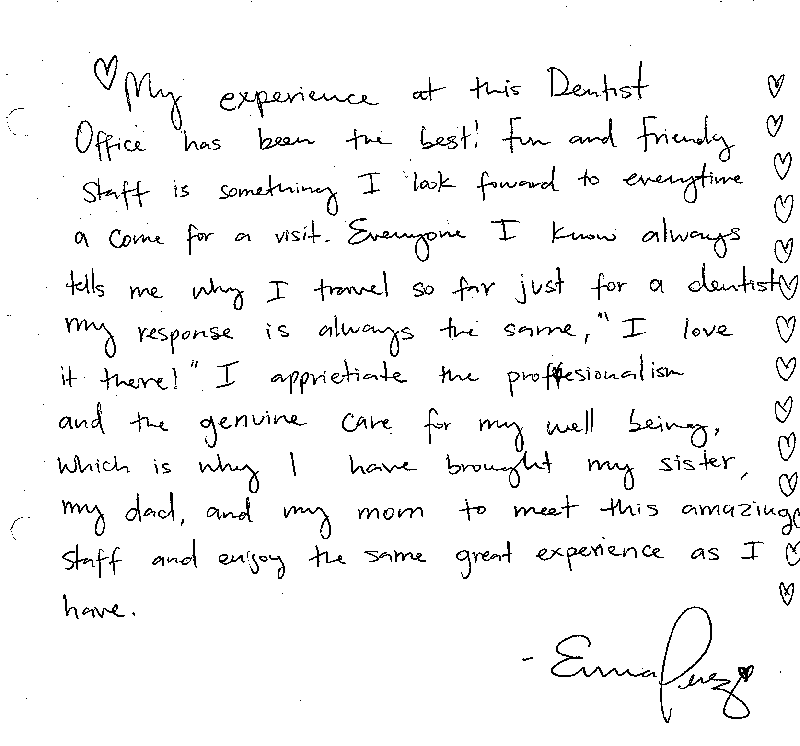 My experience at this Dentist
Office has been the best! Fun and Friendly
Staff is something I look foward to everytime
a come for a visit. Everyone I know always
tells me why I travel so far just for a dentist
my response is always the same, "I love
it there!" I apprietiate the proffesionalism
and the genuine care for my well being,
which is why I have brought my sister,
my dad, and my mom to meet this amazing
staff and enjoy the same great experience as I
have.
- Erma Perez